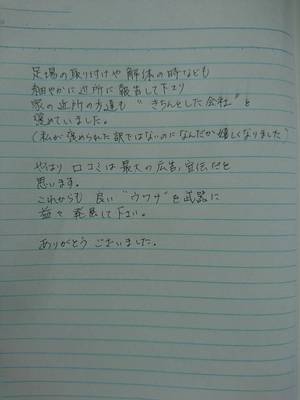 足場の取り付けや解体の時なども
細やかに近所に報告して下さり
家の近所の方達も "きちんとした会社" と
褒めていました。
(私が褒められた訳ではないのになんだか嬉しくなりました)
やはり 口コミは最大の広告、宣伝だと
思います。
これからも 良い "ウワサ" を武器に
益々 発展して下さい。
ありがとう ございました。